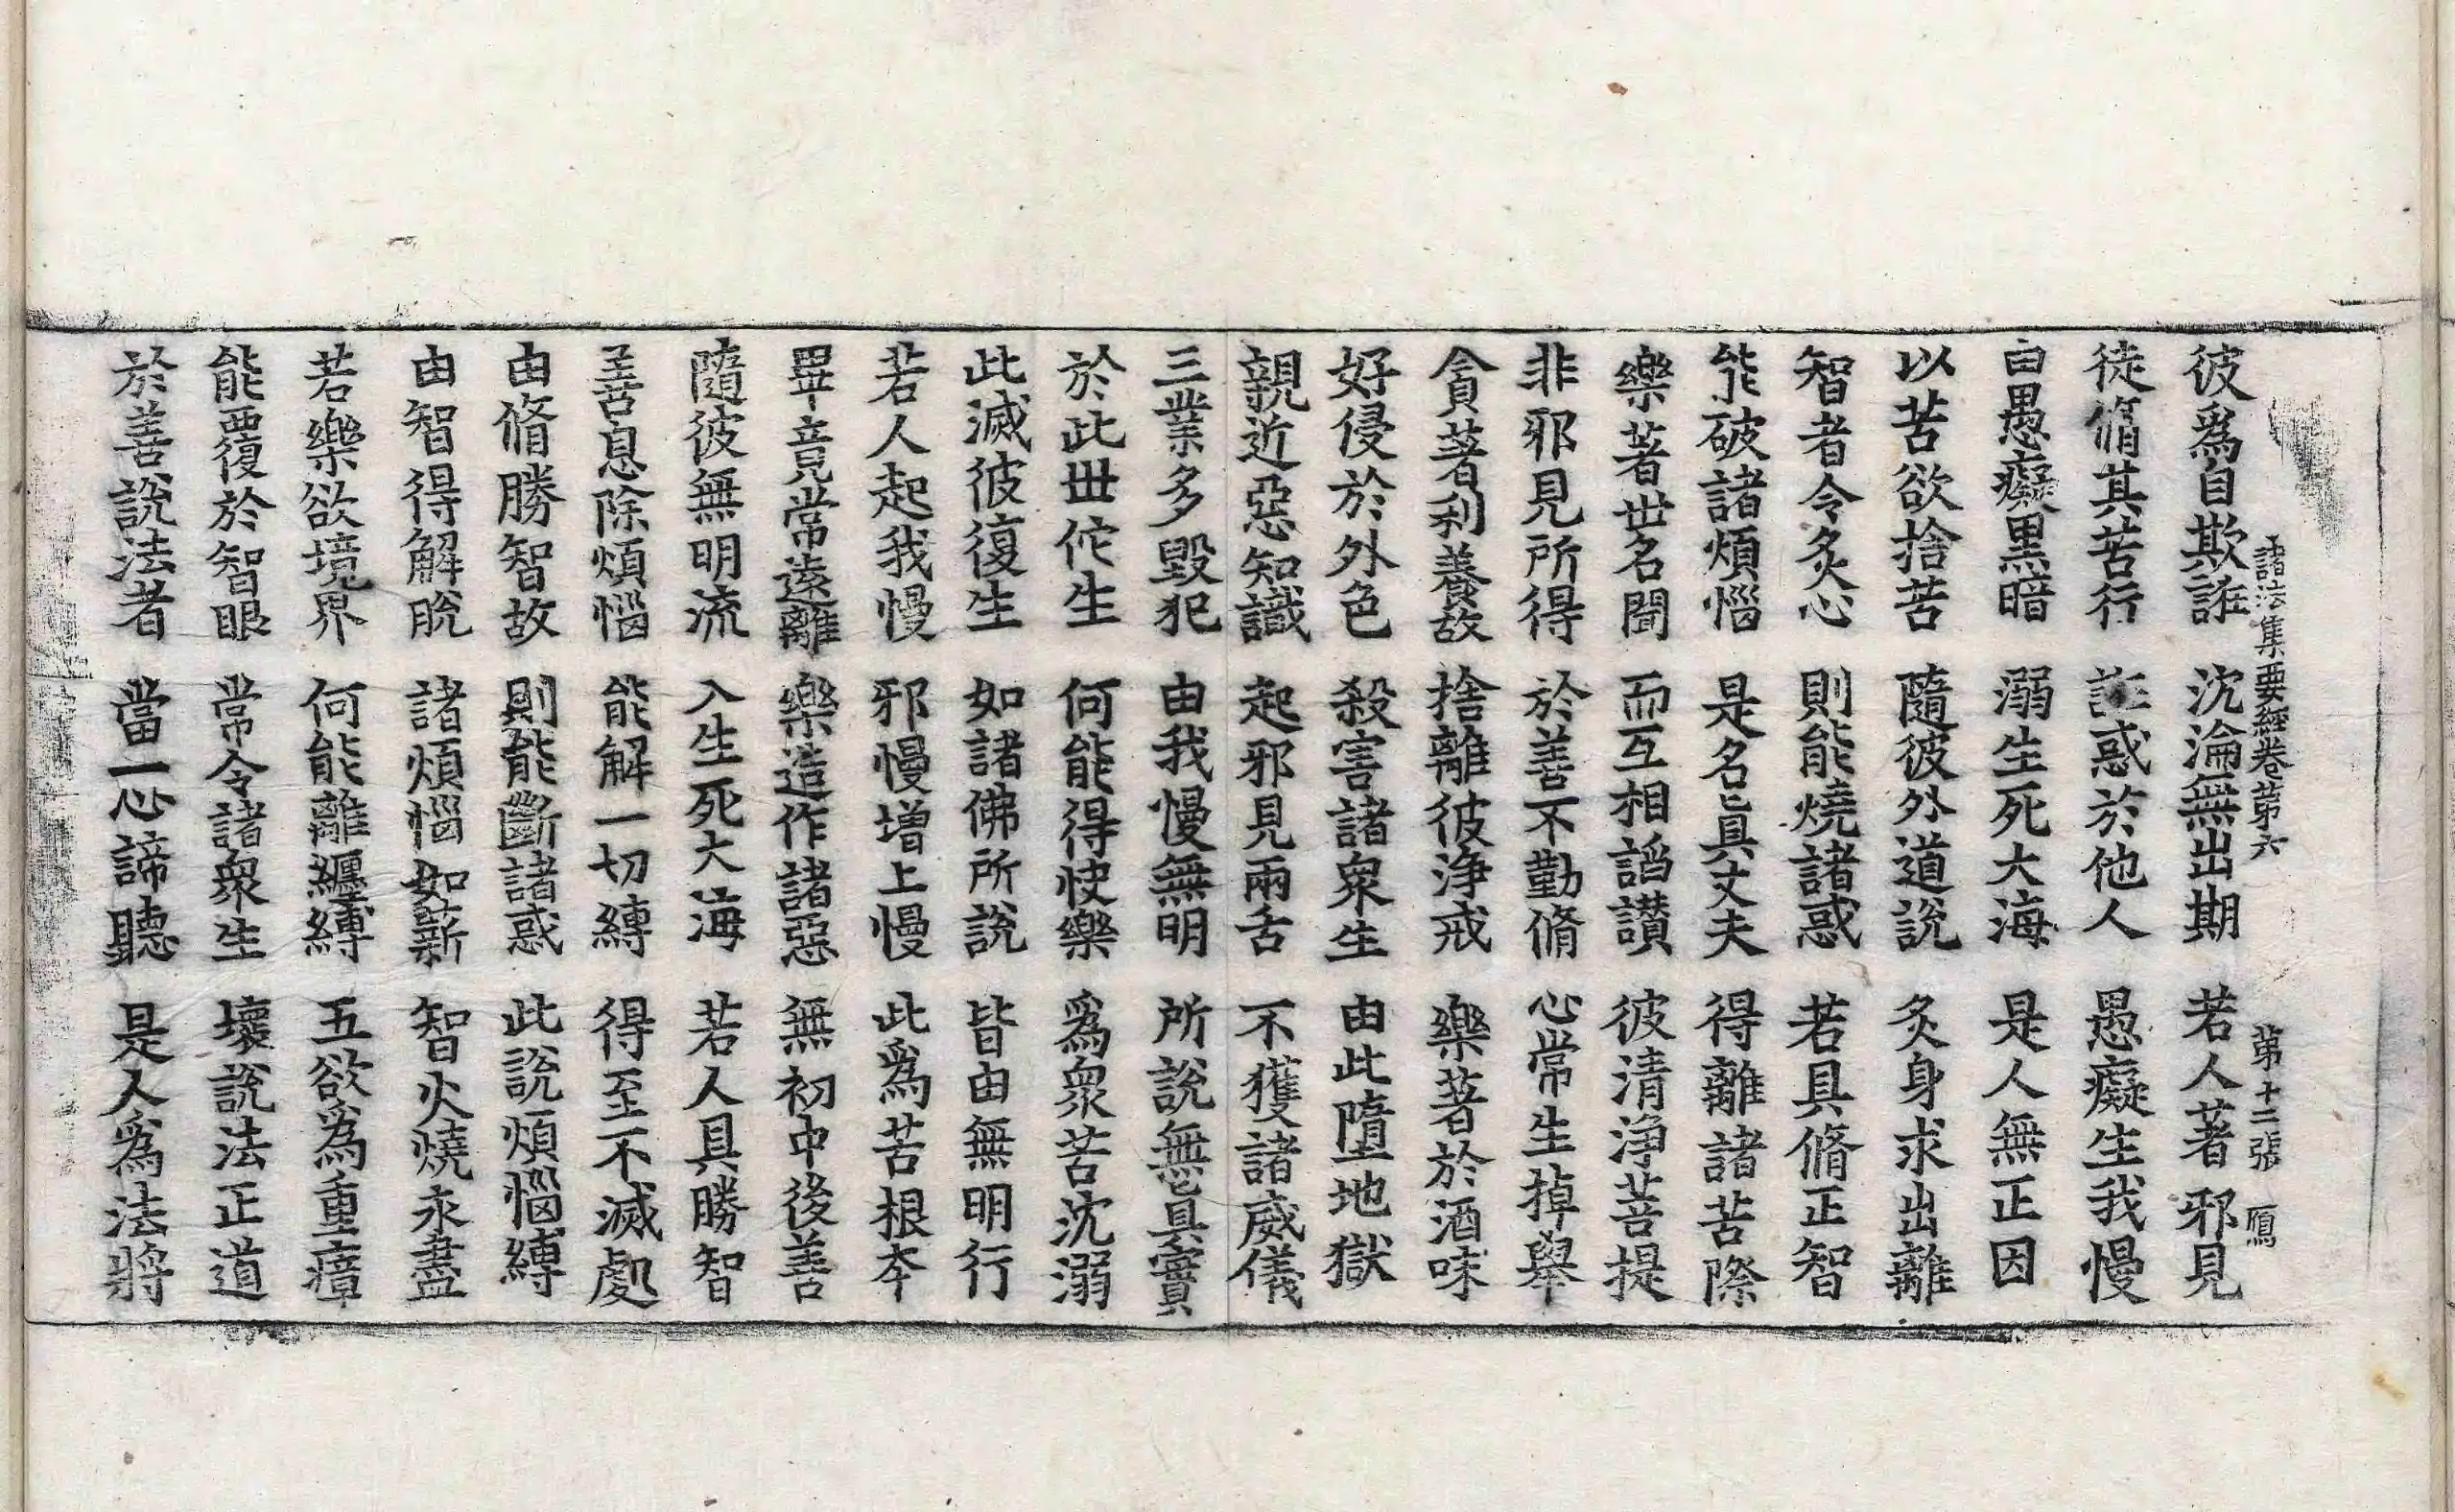 諸法集要經卷第六 第十二張 鴈
彼爲自欺誑 沈淪無出期 若人著邪見
徒脩其苦行 誑惑於他人 愚癡生我慢
由愚癡黑暗 溺生死大海 是人無正因
以苦欲捨苦 隨彼外道說 炙身求出離
智者令炙心 則能燒諸惑 若具脩正智
能破諸煩惱 是名眞丈夫 得離諸苦際
樂著世名聞 而互相謟讃 彼清淨菩提
非邪見所得 於善不勤脩 心常生掉舉
貪著利養故 捨離彼淨戒 樂著於酒味
好侵於外色 殺害諸衆生 由此墮地獄
親近惡知識 起邪見兩舌 不獲諸威儀
三業多毀犯 由我慢無明 所說無眞實
於此世佗生 何能得快樂 爲衆苦沈溺
此滅彼復生 如諸佛所說 皆由無明行
若人起我慢 邪慢增上慢 此爲苦根本
畢竟常遠離 樂造作諸惡 無初中後善
隨彼無明流 入生死大海 若人具勝智
善息除煩惱 能解一切縛 得至不滅處
由脩勝智故 則能斷諸惑 此說煩惱縛
由智得解脫 諸煩惱如薪 智火燒永盡
若樂欲境界 何能離纏縛 五欲爲重瘴
能覆於智眼 常令諸衆生 壞說法正道
於善說法者 當一心諦聽 是人爲法將